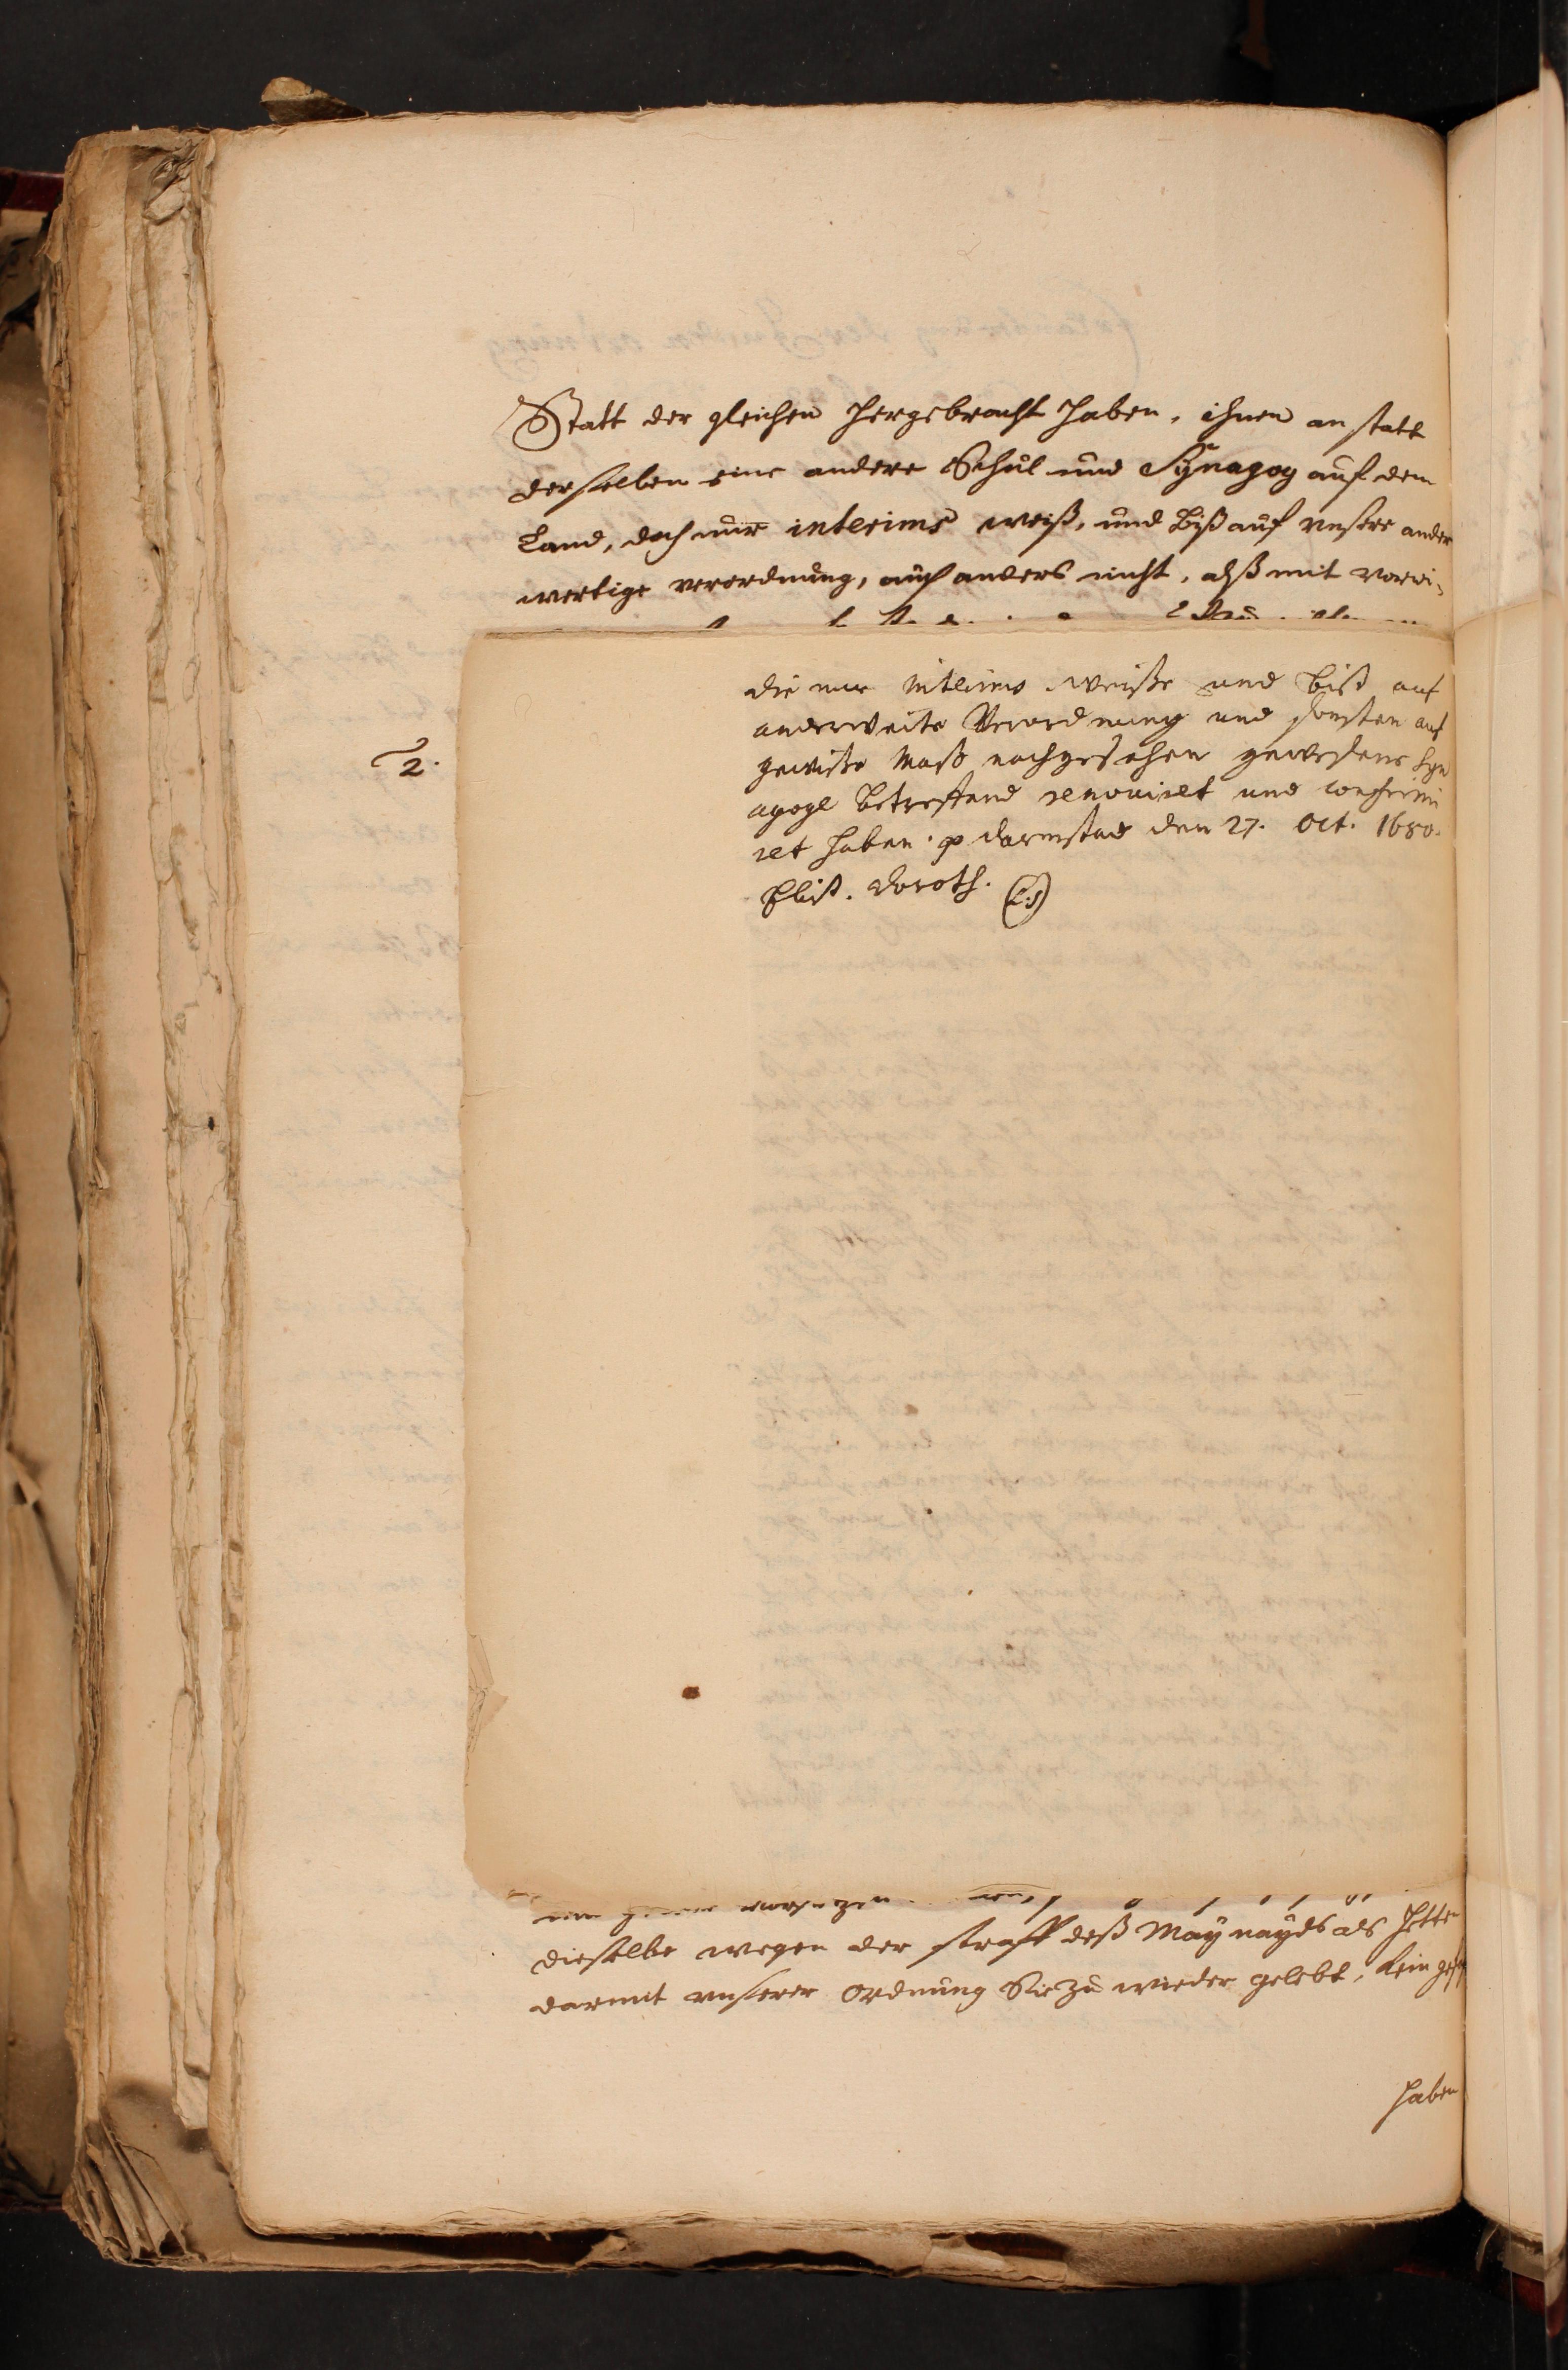 Statt der gleichen hergebracht haben, ihnen an statt
derselben eine andere Schul und Synagog auf dem
Land, doch nur interims weiß, und biß auf unsere ander
wertige verordnung, auch anders nicht, alß mit vorwi-
2.
die nur interims weiße und biß auf
anderweite Verordnung und sonsten auf
gewiße maß nachgesehen gewesene Syn
agoge betreffend renoviret und confirmi
ret haben. Darmstad den 27. Oct. 1680.
Elis. Doroth. (L.S)
dieselbe wegen der straff deß Maynayds als hette
darmit unserer Ordnung Sie zu wieder gelebt, kein
haben